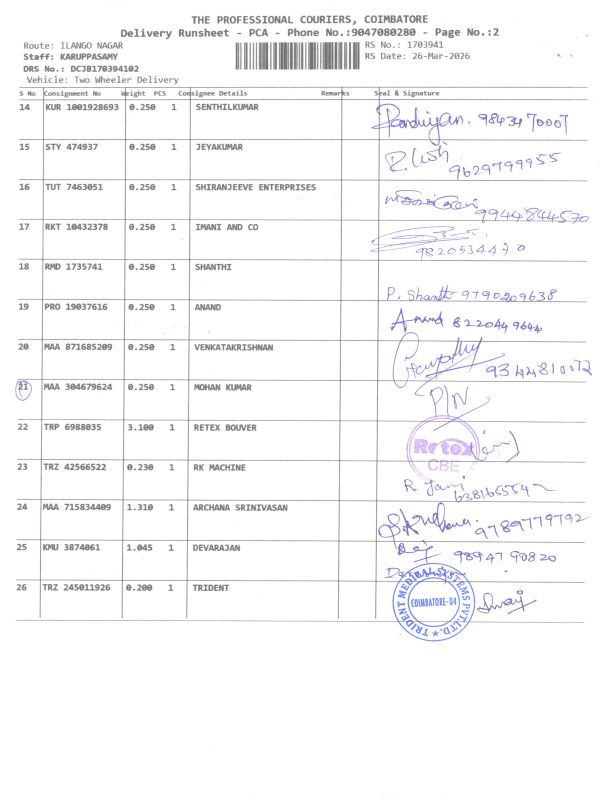 THE PROFESSIONAL COURIERS, COIMBATORE
Delivery Runsheet - PCA - Phone No.:9047080280 - Page No.:2
Route: ILANGO NAGAR RS No.: 1703941
Staff: KARUPPASAMY RS Date: 26-Mar-2026
DRS No.: DCJB170394102
Vehicle: Two Wheeler Delivery
S No Consignment No Weight PCS Consignee Details Remarks Seal & Signature
14 KUR 1001928693 0.250 1 SENTHILKUMAR
Pandiyan. 9843470007
15 STY 474937 0.250 1 JEYAKUMAR
9629799955
16 TUT 7463051 0.250 1 SHIRANJEEVE ENTERPRISES
9944844570
17 RKT 10432378 0.250 1 IMANI AND CO
9820534470
18 RMD 1735741 0.250 1 SHANTHI
P. Shanthi 9790209638
19 PRO 19037616 0.250 1 ANAND
Anand 8220449644
20 MAA 871685209 0.250 1 VENKATAKRISHNAN
9344810072
21 MAA 304679624 0.250 1 MOHAN KUMAR
P/N
22 TRP 6988035 3.100 1 RETEX BOUVER
Retex
CBE
23 TRZ 42566522 0.230 1 RK MACHINE
R. Jani
24 MAA 715834409 1.310 1 ARCHANA SRINIVASAN
9789779792
25 KMU 3874061 1.045 1 DEVARAJAN
9894790820
26 TRZ 245011926 0.200 1 TRIDENT
TRIDENT MEDICAL SYSTEMS PVT.LTD.
COIMBATORE-04